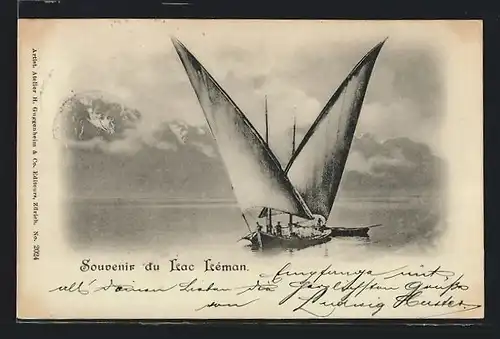 Artist. Atelier H. Guggenheim & Co. Editeurs, Zürich. No. 2024
Souvenir du Lac Léman.
Empfange mit
all' Deinen Lieben die herzlichsten Grüße
von Ludwig